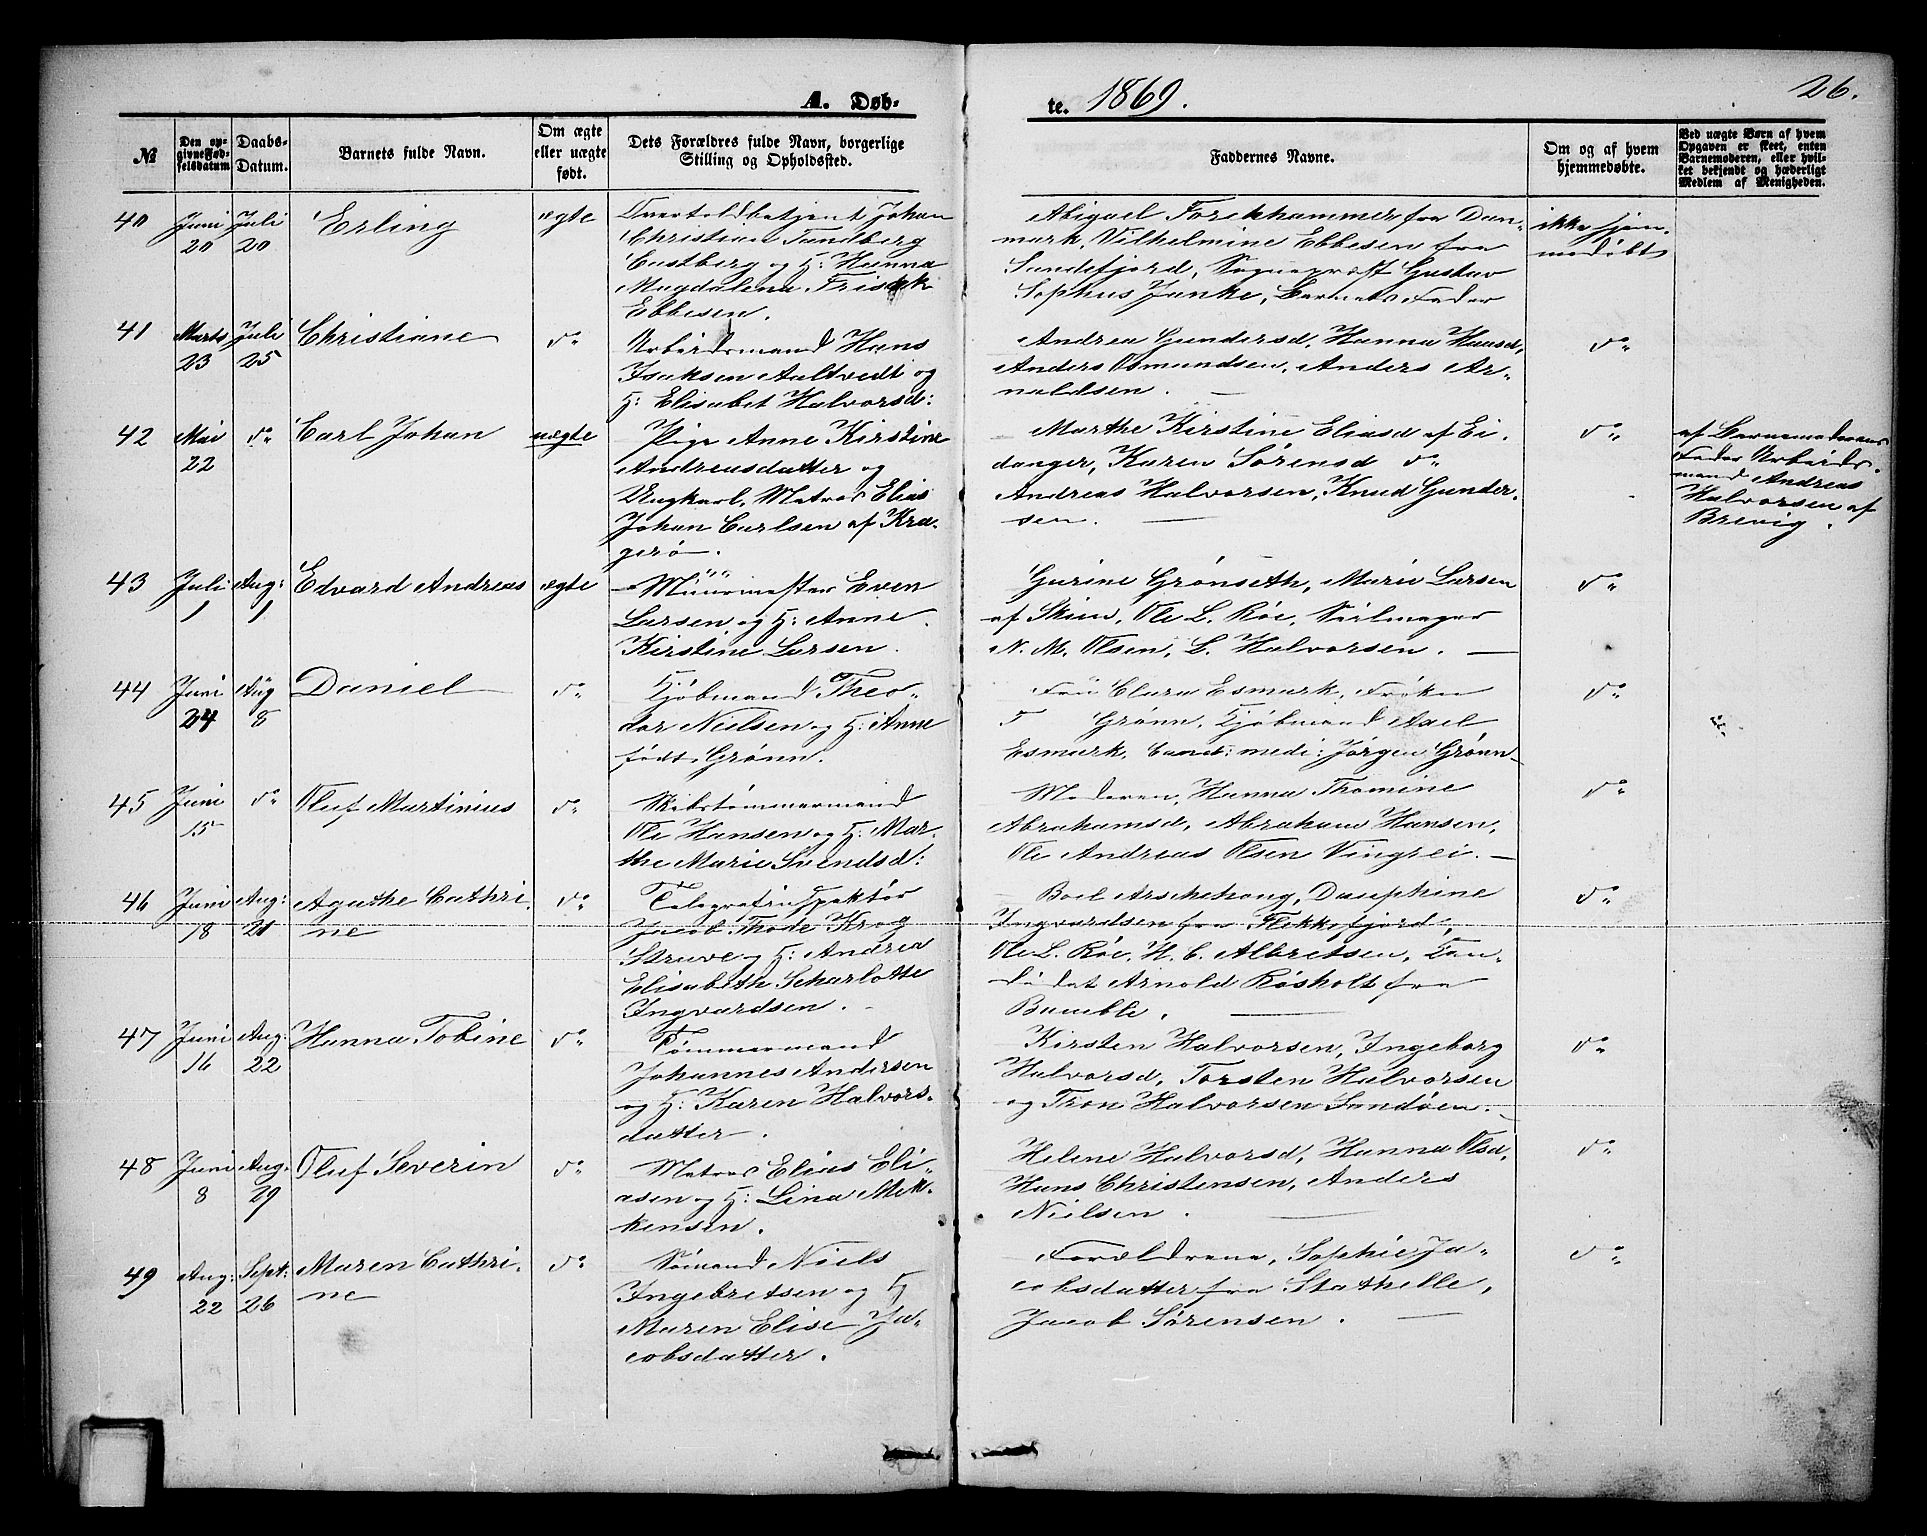 A. Døb-
te. 1869.
26.
№
Den opgivne Fødselsdatum
Daabs-Datum.
Barnets fulde Navn.
Om ægte eller uægte født.
Dets Forældres fulde Navn, borgerlige Stilling og Opholdssted.
Faddernes Navne.
Om og af hvem hjemmedøbte.
Ved uægte Børn af hvem Opgaven er skeet, enten Barnemoderen, eller hvilket bekjendt og hæderligt Medlem af Menigheden.
40
Juni 20
Juli 20
Erling
ægte
Overtoldbetjent Johan
Christian Tandberg
Castberg og H: Hanna
Magdalena Frisak
Ebbesen.
Abigael Forchhammer fra Dan-
mark, Vilhelmine Ebbesen fra
Sandefjord, Sognepræst Gustav
Sophus Janke, Barnets Fader
ikke hjem-
medøbt
41
Marts 23
Juli 25
Christiane
do
Arbeidsmand Hans
Isaksen Aaltvedt og
H: Elisabet Halvorsd:
Andrea Gundersd, Hanna Hansd,
Anders Osmundsen, Anders Ar-
noldsen.
do
42
Mai 22
do
Carl Johan
uægte
Pige Anne Kirstine
Andreasdatter og
Ungkarl, Matros Elias
Johan Carlsen af Kra-
gerø.
Marthe Kirstine Eliasd af Ei-
danger, Karen Sørensd do
Andreas Halvorsen, Knud Gunder-
sen.
do
af Barnemoderens
Fader Arbeids-
mand Andreas
Halvorsen af
Brevig.
43
Juli 1
Aug: 1
Edvard Andreas
ægte
Muurmester Even
Larsen og H: Anne
Kirstine Larsen.
Gurine Grønseth, Marie Larsen
af Skien, Ole L. Röe, Seilmager
N. M. Olsen, L. Halvorsen.
do
44
Juni 24
Aug 8
Daniel
do
Kjöbmand Theo-
dor Nielsen og H: Anne
født Grønn.
Fru Clara Esmark, Frøken
T Grønn, Kjöbmand Axel
Esmark, Cand: medi: Jørgen Grønn
do
45
Juni 15
do
Oluf Martinius
do
Skibstømmermand
Ole Hansen og H: Mar-
the Marie Svendsd:
Moderen, Hanna Tromine
Abrahamsd, Abraham Hansen,
Ole Andreas Olsen
do
46
Juni 18
Aug: 21
Agathe Cathri-
ne
do
Telegrafinspektör
Jacob Thode Krog
Struve og H: Andrea
Elisabeth Scharlotte
Ingvardsen.
Boel Arschehoug, Dasephine
Ingvardsen fra Flekkefjord,
Ole L. Röe, H. C. Albretsen, Kan-
didat Arnold Rösholt fra
Bamble.
do
47
Juni 16
Aug: 22
Hanna Tobine
do
Tømmermand
Johannes Andersen
og H: Karen Halvors-
datter.
Kirsten Halvorsen, Ingeborg
Halvorsd, Torsten Halvorsen
og Tron Halvorsen Sandöen.
do
48
Juni 8
Aug. 29
Oluf Severin
do
Matros Elias Eli-
asen og H: Lina Mik-
kensen.
Helene Halvorsd, Hanna Olsd,
Hans Christensen, Anders
Nielsen.
do
49
Aug: 22
Sept: 26
Maren Cathri-
ne
do
Sömand Niels
Ingebretsen og H
Maren Elise Ja-
cobsdatter.
Forældrene, Sophie Ja-
cobsdatter fra Stathelle,
Jacob Sørensen.
do